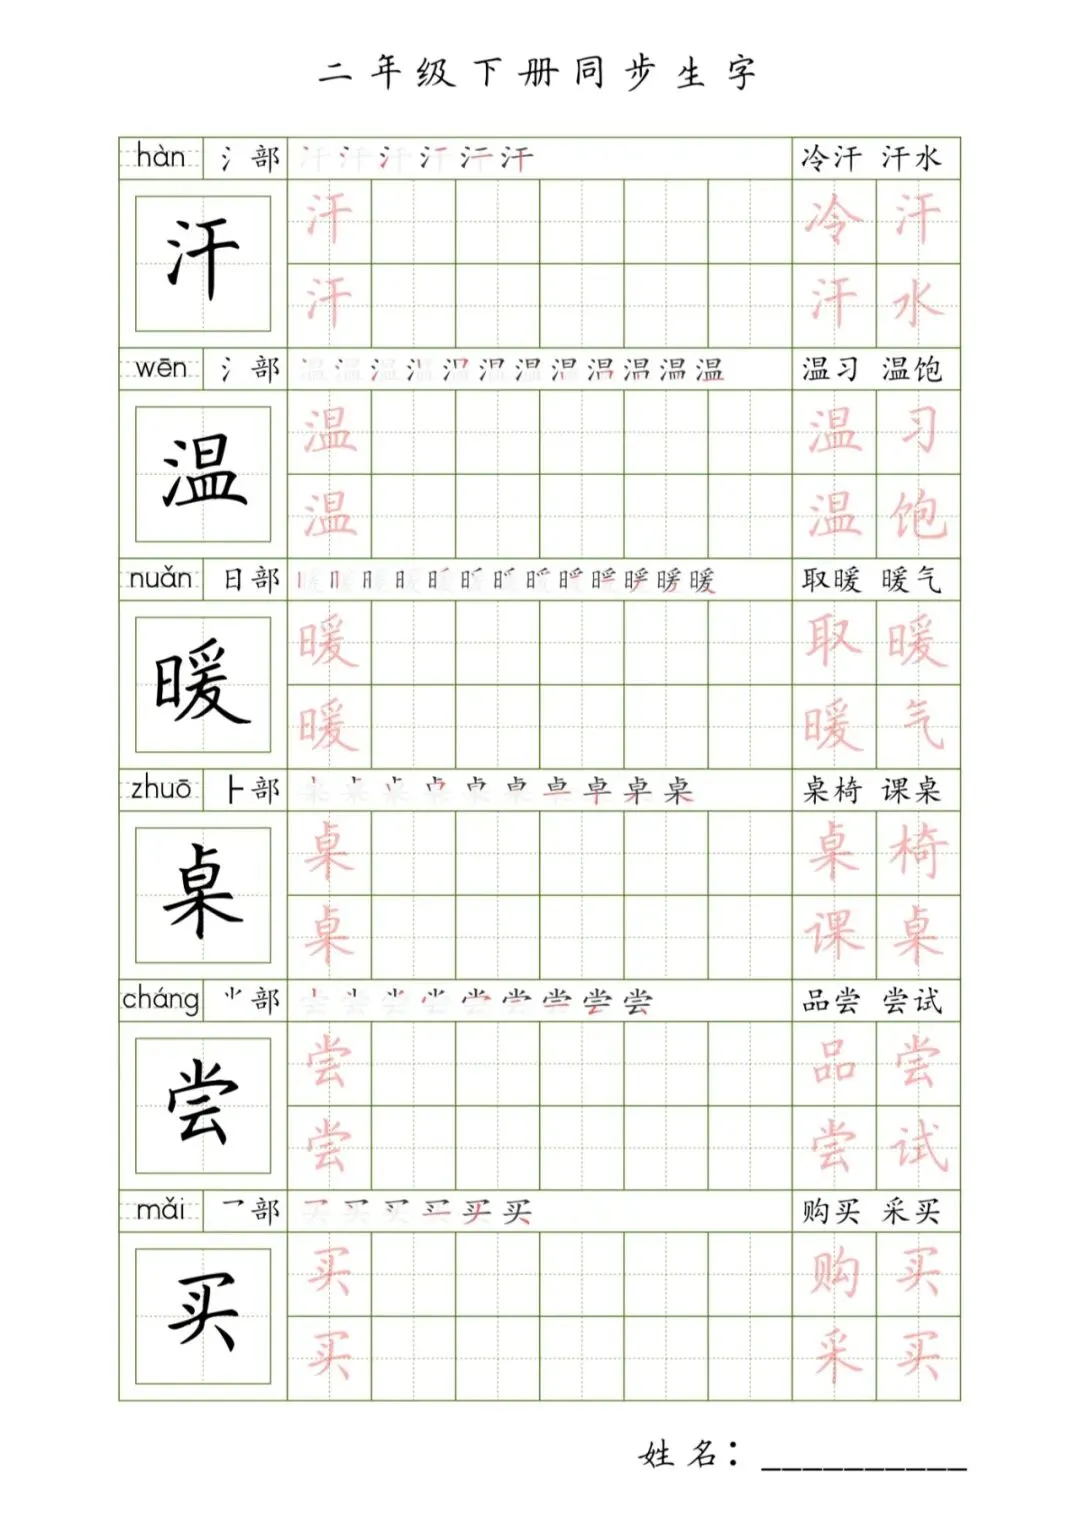 二年级下册同步生字
hàn 氵部 汗 汗 汗 汗 汗 汗 冷汗 汗水
汗 汗 冷 汗
汗 汗 水
wēn 氵部 温 温 温 温 温 温 温 温 温 温 温 温 温习 温饱
温 温 温 习
温 温 饱
nuǎn 日部 暖 暖 暖 暖 暖 暖 暖 暖 暖 暖 暖 暖 暖 取暖 暖气
暖 暖 取 暖
暖 暖 气
zhuō ⺊部 桌 桌 桌 桌 桌 桌 桌 桌 桌 桌 桌椅 课桌
桌 桌 桌 椅
桌 课 桌
cháng ⺌部 尝 尝 尝 尝 尝 尝 尝 尝 尝 品尝 尝试
尝 尝 品 尝
尝 尝 试
mǎi 乛部 买 买 买 买 买 买 购买 采买
买 买 购 买
买 采 买
姓名：__________